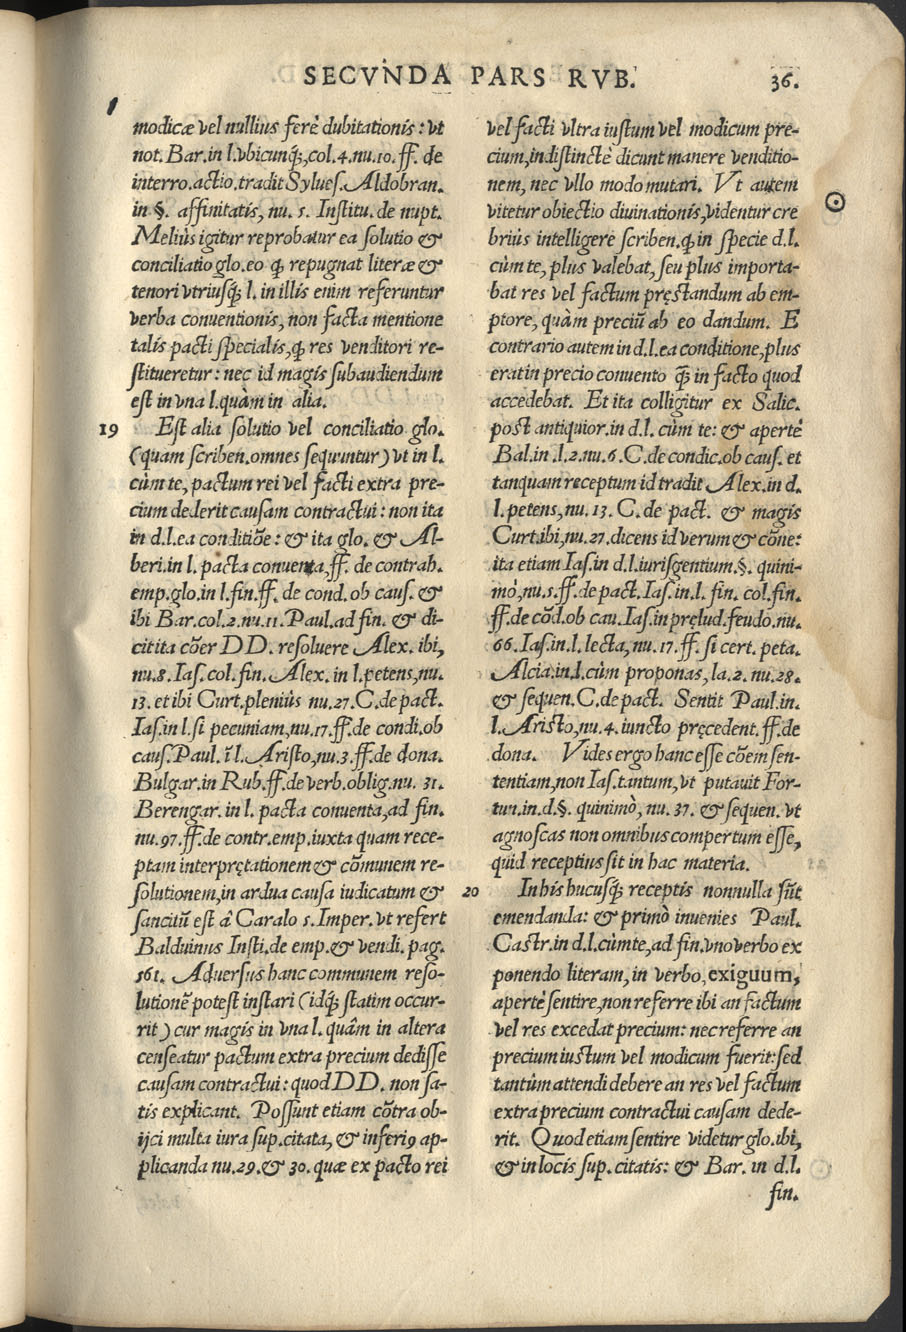 SECVNDA PARS RVB. 36.
modicæ vel nullius ferè dubitationis: vt
not. Bar. in l. vbicunq́;, col. 4. nu. 10. ff. de
interro. actio. tradit Sylues. Aldobran.
in §. affinitatis, nu. 5. Institu. de nupt.
Meliùs igitur reprobatur ea solutio &
conciliatio glo. eo q̀ repugnat literæ &
tenori vtriusq́; l. in illis enim referuntur
verba conuentionis, non facta mentione
talis pacti specialis, q̀ res venditori re-
stitueretur: nec id magis subaudiendum
est in vna l. quàm in alia.
19 Est alia solutio vel conciliatio glo.
(quam scriben. omnes sequuntur) vt in l.
cùm te, pactum rei vel facti extra pre-
cium dederit causam contractui: non ita
in d. l. ea conditiõe: & ita glo. & Al-
beri. in l. pacta conuenta, ff. de contrah.
emp. glo. in l. fin. ff. de cond. ob caus. &
ibi Bar. col. 2. nu. 11. Paul. ad fin. & di-
citita cõer DD. resoluere Alex. ibi,
nu. 8. Ias. col. fin. Alex. in l. petens, nu.
13. et ibi Curt. pleniùs nu. 27. C. de pact.
Ias. in l. si pecuniam, nu. 17. ff. de condi. ob
caus. Paul. ĩ l. Aristo, nu. 3. ff. de dona.
Bulgar. in Rub. ff. de verb. oblig. nu. 31.
Berengar. in l. pacta conuenta, ad fin.
nu. 97. ff. de contr. emp. iuxta quam rece-
ptam interprętationem & cõmunem re-
solutionem, in ardua causa iudicatum &
sancitũ est â Caralo 5. Imper. vt refert
Balduinus Insti. de emp. & vendi. pag.
561. Aduersus hanc communem reso-
lutionẽ potest instari (idq́; statim occur-
rit) cur magis in vna l. quâm in altera
censeatur pactum extra precium dedisse
causam contractui: quod DD. non sa-
tis explicant. Possunt etiam cõtra ob-
ijci multa iura sup. citata, & inferi9 ap-
plicanda nu. 29. & 30. quæ ex pacto rei
vel facti vltra iustum vel modicum pre-
cium, indistinctè dicunt manere venditio-
nem, nec vllo modo mutari. Vt autem
vitetur obiectio diuinationis, videntur cre
briùs intelligere scriben. q̀ in specie d. l.
cùm te, plus valebat, seu plus importa-
bat res vel factum pręstandum ab em-
ptore, quàm preciũ ab eo dandum. E
contrario autem in d. l. ea conditione, plus
erat in precio conuento q̃ in facto quod
accedebat. Et ita colligitur ex Salic.
post antiquior. in d. l. cùm te: & apertè
Bal. in . l. 2. nu. 6. C. de condic. ob caus. et
tanquam receptum id tradit Alex. in d.
l. petens, nu. 13. C. de pact. & magis
Curt. ibi, nu. 27. dicens id verum & cõne:
ita etiam Ias. in d. l. iurisgentium. §. quini-
mò, nu. 5. ff. de pact. Ias. in l. fin. col. fin.
ff. de cõd. ob cau. Ias. in pręlud. feudo. nu.
66. Ias. in l. lecta, nu. 17. ff. si cert. peta.
Alcia. in . l. cùm proponas, la. 2. nu. 28.
& sequen. C. de pact. Sentit Paul. in.
l. Aristo, nu. 4. iuncto pręcedent. ff. de
dona. Vides ergo hanc esse cõem sen-
tentiam, non Ias. tantum, vt putauit For-
tun. in. d. §. quinimò, nu. 37. & sequen. vt
agnoscas non omnibus compertum esse,
quid receptius sit in hac materia.
20 In his hucusq́; receptis nonnulla sũt
emendanda: & primò inuenies Paul.
Castr. in d. l. cùm te, ad fin. vno verbo ex
ponendo literam, in verbo, exiguum,
apertè sentire, non referre ibi an factum
vel res excedat precium: nec referre an
precium iustum vel modicum fuerit: sed
tantùm attendi debere an res vel factum
extra precium contractui causam dede-
rit. Quod etiam sentire videtur glo. ibi,
& in locis sup. citatis: & Bar. in d. l.
fin.